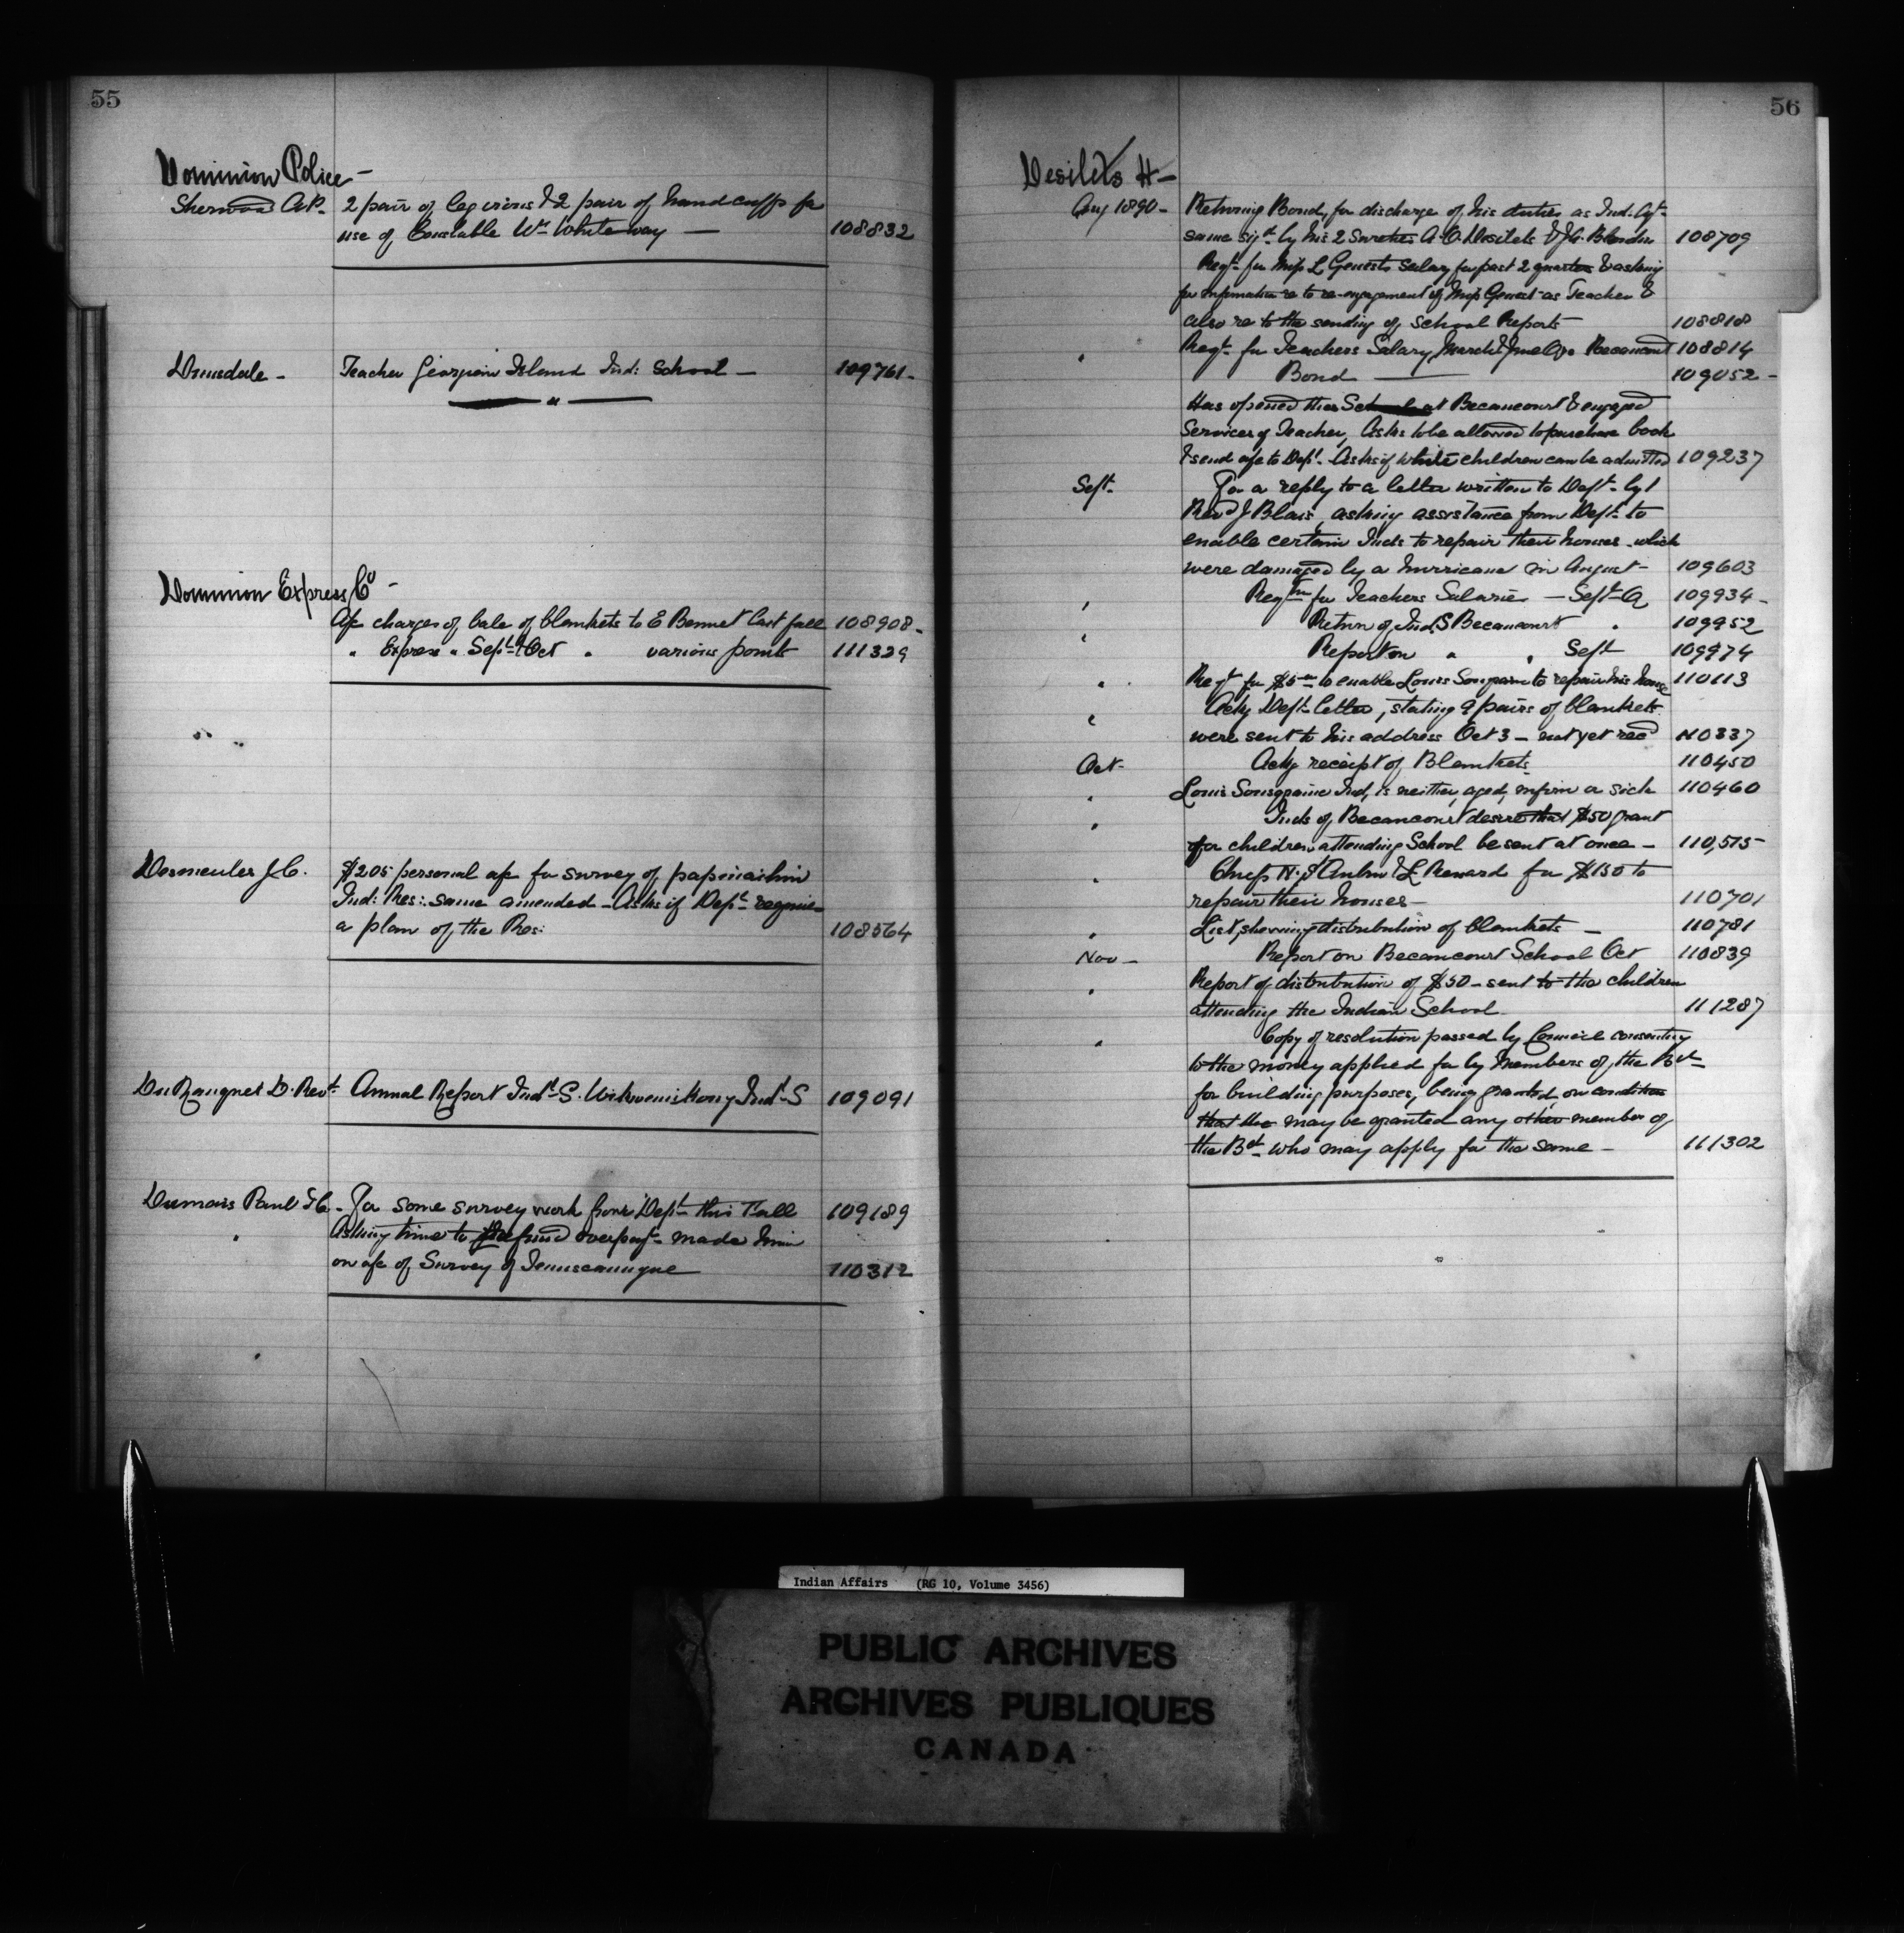 55
Dominion Police -
Sherwood A.P. 2 pair of leg irons & 2 pair of handcuffs for
use of Constable Wm Whiteway — 108832
Teacher Georgian Island Ind: School — 109761-
Dominion Express Co -
A/c charges of bale of blankets to E Bennet last fall 108908-
" Express " Sept & Oct " various points 111329
Desmeules J.C. $205 personal a/c for survey of
Ind: Res: same amended - Asks if Dept requires
a plan of the Res: 108564
DuRanquet D. Revd Annual Report Indl S. Wikwemikong Indl S 109091
Dumais Paul T.C. - For some survey work from Dept this Fall 109189
" Asking time to refund overpayt made him
on a/c of Survey of Temiscamingue 110312
56
Desilets H-
Aug 1890 - Returning Bond, for discharge of his duties as Ind. Agt-
same sigd by his 2 Sureties A.O. Desilets & J.G. Blondin 108709
Reqt for Miss L Genest's Salary for past 2 quarters & asking
for information re to re-engagement of Miss Genest as Teacher &
also re to the sending of School Reports 108818
" Reqt for Teachers Salary, March & June Qrs Becancourt 108814
Bond — 109052-
Has opened the School at Becancourt & engaged
Services of Teacher, Asks to be allowed to purchase books
& send a/c to Dept - Asks if white children can be admitted 109237
Sept. For a reply to a letter written to Dept by
Revd J Blais, asking assistance from Dept to
enable certain Inds to repair their houses - which
were damaged by a hurricane in August - 109603
" Reqtn for Teachers Salaries — Sept Q 109934-
" Return of Ind. S Becancourt " 109952
Report on " " Sept 109974
" Reqt for $5 to enable Louis to repair his house 110113
" Ackg Dept letter, stating 9 pairs of blankets
were sent to his address Oct 3 - not yet recd 110337
Oct- Ackg receipt of Blankets 110450
" Louis Ind, is neither, aged, infirm or sick 110460
" Inds of Becancourt desire that $50 grant
for children attending School be sent at once - 110,575
" Chief H. St Aubin & L Renard for $150 to
repair their houses - 110701
" List, showing distribution of blankets — 110781
Nov - Report on Becancourt School Oct 110839
" Report of distribution of $50 - sent to the children
attending the Indian School 111287
" Copy of resolution passed by Council consenting
to the money applied for by members of the Bd-
for building purposes, being granted, on condition
that the may be granted any other member of
the Bd who may apply for the same - 111302
Indian Affairs (RG 10, Volume 3456)
PUBLIC ARCHIVES
ARCHIVES PUBLIQUES
CANADA